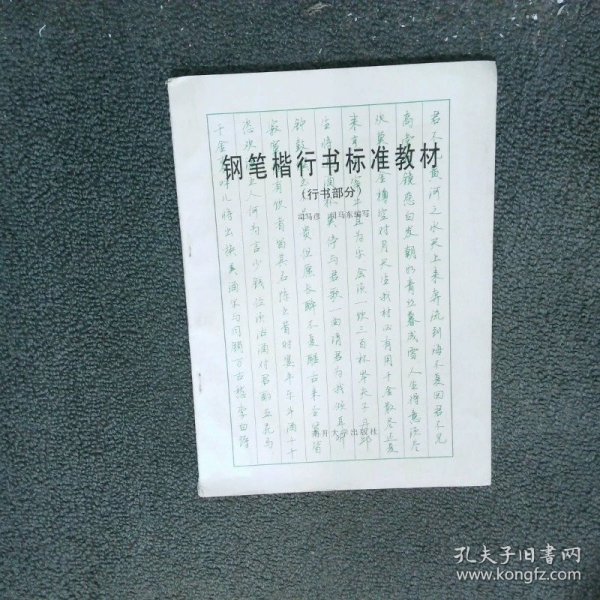 钢笔楷行书标准教材
（行书部分）
司马彦 司马东编写
南开大学出版社
君不 黄河之水天上来奔流到海不复回君不见
高 镜悲白发朝如青丝暮成雪人生得意须尽
欢 金樽空对月天生我材必有用千金散尽还复
来 且为乐会须一饮三百杯岑夫子丹邱
生将 与君歌一曲请君为我倾耳
钟鼓 贵但愿长醉不复醒古来圣贤皆
寂 有饮者留其名陈王昔时宴平乐斗酒十千
恣欢 主人何为言少钱径须沽酒对君酌五花马
千金 呼儿将出换美酒与同销万古愁李白诗
孔夫子旧书网
www.kongfz.com